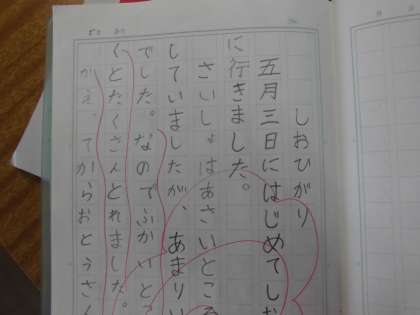 しおひがり
五月三日にはじめてしお
に行きました。
さいしょはあさいところ
していましたが、あまりい
でした。なのでふかいとこ
くとたくさんとれました。
かえってからおとうさん